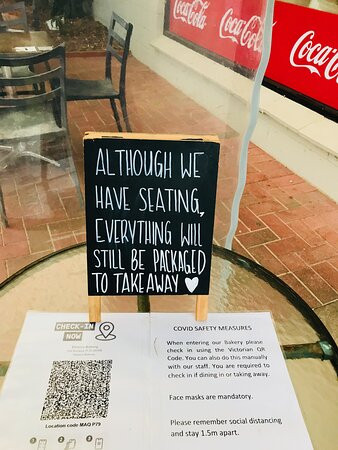 Coca-Cola
Coca-Cola
Coca-Cola
ALTHOUGH WE
HAVE SEATING,
EVERYTHING WILL
STILL BE PACKAGED
TO TAKEAWAY ♥
CHECK-IN
NOW
Location code MAQ P79
COVID SAFETY MEASURES
When entering our Bakery please
check in using the Victorian QR
Code. You can also do this manually
with our staff. You are required to
check in if dining in or taking away.
Face masks are mandatory.
Please remember social distancing
and stay 1.5m apart.
1
2
3